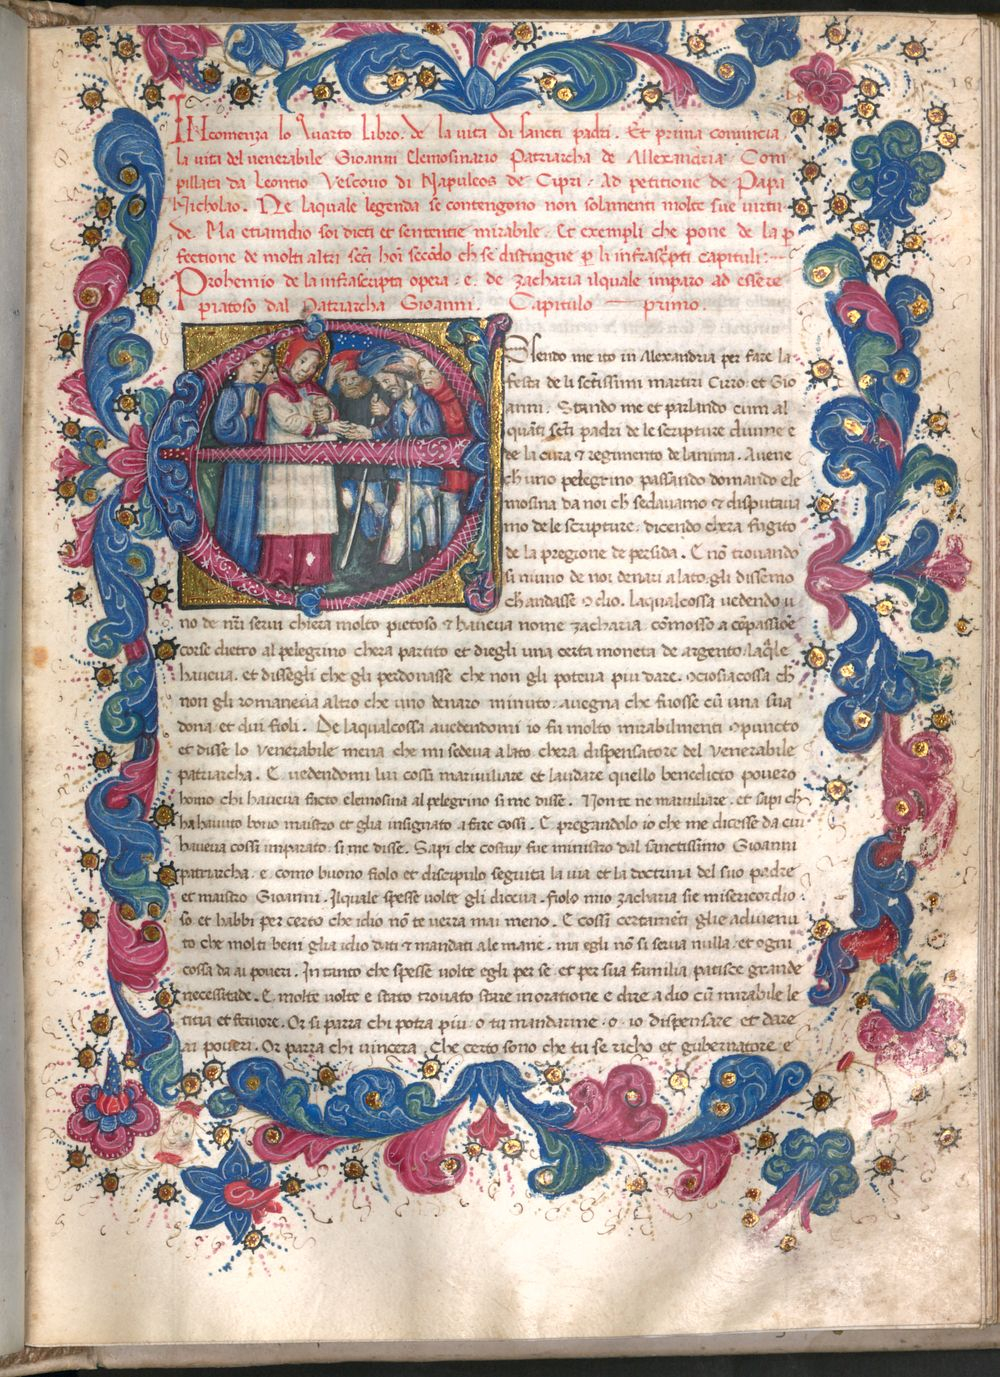 18
INcomenza lo Quarto Libro. de la uita di sancti padri. Et prima comincia
la uita del uenerabile Gioanni Elemosinario Patriarcha de Alexandria. Com
pillata da Leontio Vescouo di Napuleos de Cipri. Ad petitione de Papa
Nicholao. Ne laquale legenda se contengono non solamenti molte sue uirtu
de. Ma etiamdio soi dicti et sententie mirabile. Et exempli che pone de la p
fectione de molti altri scti hoi secodo ch se distingue p li infrascpti capituli:~
Prohemio de la infrascripta opera. e. de zacharia ilquale imparo ad essere
piatoso dal Patriarcha Gioanni. Capitulo primo
ESsendo me ito in Alexandria per fare la
festa de li sctissimi martiri Cirro. et Gio
anni. Stando me et parlando cum al
quati scti padri de le scripture diuine e
de la cura & regimento de lanima. Auene
ch uno pelegrino passando domando ele
mosina da noi ch sedauamo & disputaua
mo de le scripture. dicendo chera fugito
de la pregione de persida. E no trouando
si niuno de noi denari a lato. gli dissemo
ch andasse cu dio. Laqualcossa uedendo u
no de nri serui chiera molto pietoso & haueua nome zacharia. comosso a copassioe
corse dietro al pelegrino chera partito et diegli una certa moneta de argento. laqle
haueua. et dissegli che gli perdonasse che non gli poteua piu dare. conciosiacossa ch
non gli romaneua altro che uno denaro minuto. auegna che fuosse cu una sua
dona et dui fioli. De laqualcossa auedendomi io fu molto mirabilmenti conpuncto
et disse lo venerabile mena che mi sedeua a lato chera dispensatore del venerabile
patriarcha. E uedendomi lui cossi marauiliare et laudare quello benedicto pouero
homo chi haueua facto elemosina al pelegrino si me disse. Non te ne marauiliare. et sapi ch
ha hauuto bono maistro et gli a insignato a fare cossi. E pregandolo io che me dicesse da cui
haueua cossi imparato. si me disse. Sapi che costuy fue ministro dal sanctissimo Gioanni
patriarcha. e. como buono fiolo et discipulo seguita la uia et la doctrina del suo padre
et maistro Gioanni. Ilquale spesse uolte gli diceua. fiolo mio zacharia sie misericordio
so. et habbi per certo che idio no te uerra mai meno. E cossi certameti gli e adiuenu
to che molti beni gli a idio dati & mandati a le mane. ma egli no si serua nulla. et ogni
cossa da ai poueri. In tanto che spesse uolte egli per se. et per sua familia. patisce grande
necessitade. E. molte uolte e stato trouato stare in oratione e dire a dio cu mirabile le
ticia et feruore. Or si parra chi potra piu. o tu mandarme. o. io dispensare et dare
ai poueri. Or parra chi uincera. Che certo sono che tu se richo et gubernatore e